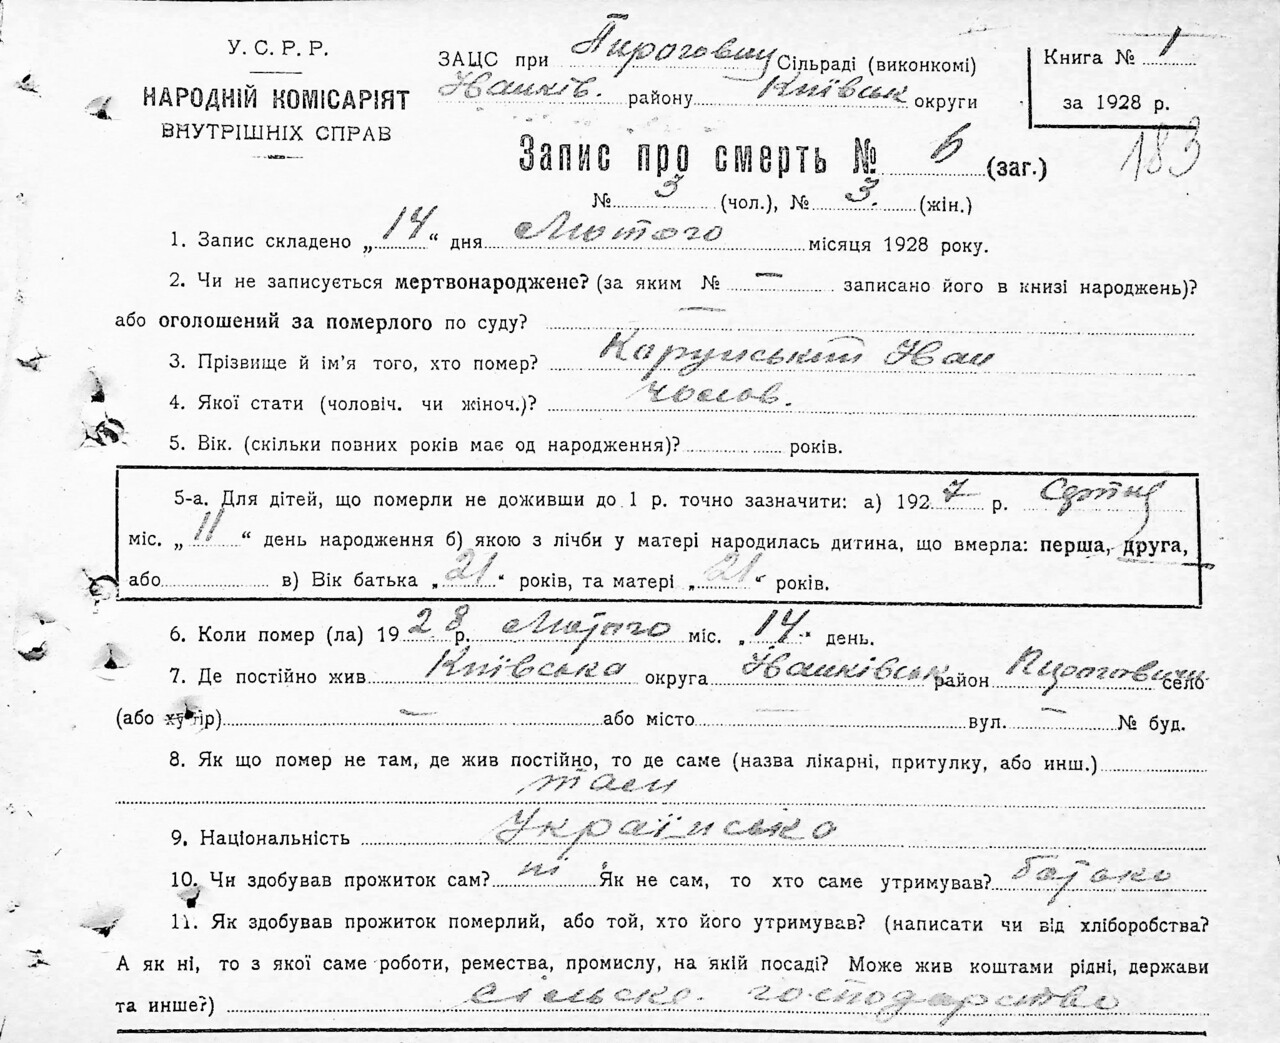 У. С. Р. Р.
НАРОДНІЙ КОМІСАРІЯТ
ВНУТРІШНІХ СПРАВ
ЗАЦС при Пирогович Сільраді (виконкомі)
Іванків. району Київськ округи
Книга № 1
за 1928 р.
183
Запис про смерть № 6 (заг.)
№ 3 (чол.), № 3. (жін.)
1. Запис складено „ 14 “ дня Лютого місяця 1928 року.
2. Чи не записується мертвонароджене? (за яким № — записано його в книзі народжень)?
або оголошений за померлого по суду? —
3. Прізвище й ім'я того, хто помер? Іван
4. Якої стати (чоловіч. чи жіноч.)? чолов.
5. Вік. (скільки повних років має од народження)? років.
5-а. Для дітей, що померли не доживши до 1 р. точно зазначити: а) 1927 р.
міс. „ 11 “ день народження б) якою з лічби у матері народилась дитина, що вмерла: перша, друга,
або в) Вік батька „ 21 “ років, та матері „ 21 “ років.
6. Коли помер (ла) 1928 р. Лютого міс. „ 14 “ день.
7. Де постійно жив Київська округа Іванківськ район Пироговичи село
(або хутір) — або місто — вул. — № буд.
8. Як що помер не там, де жив постійно, то де саме (назва лікарні, притулку, або инш.)
там
9. Національність Українсько
10. Чи здобував прожиток сам? ні Як не сам, то хто саме утримував? батько
11. Як здобував прожиток померлий, або той, хто його утримував? (написати чи від хліборобства?
А як ні, то з якої саме роботи, ремества, промислу, на якій посаді? Може жив коштами рідні, держави
та инше?) сільске господарство